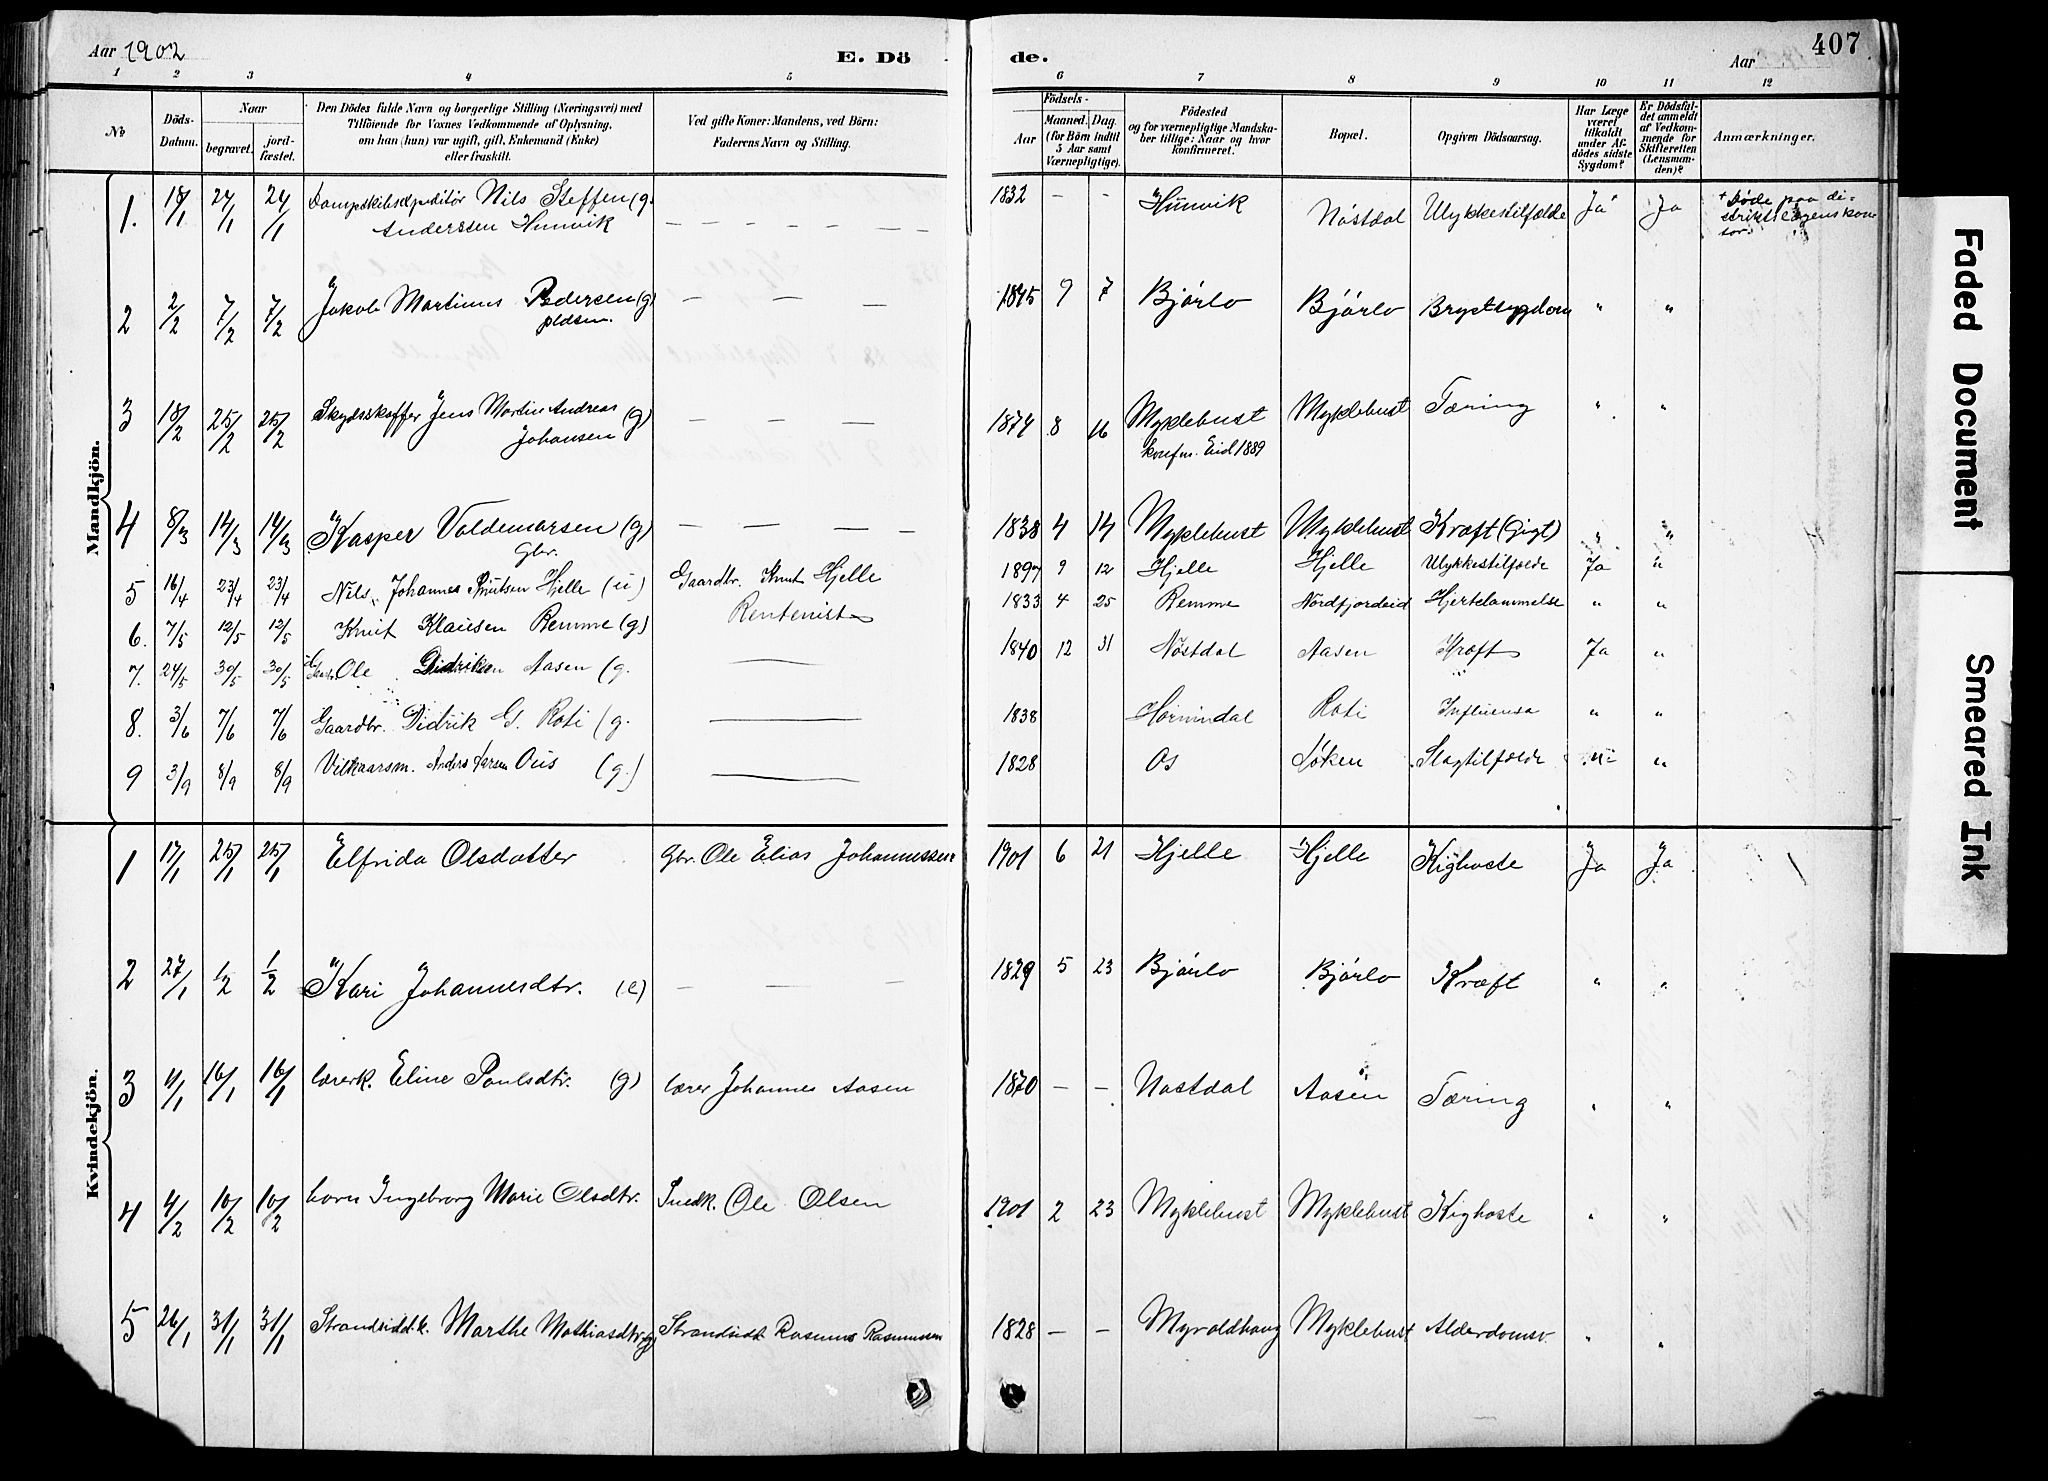 Aar 1902
E. Dö
de.
Aar
407
1 2 3 4 5 6 7 8 9 10 11 12
No
Döds-Datum.
Naar
begravet.
jord-fæstet.
Den Dödes fulde Navn og borgerlige Stilling (Næringsvei) med
Tilföiende for Voxnes Vedkommende af Oplysning,
om han (hun) var ugift, gift, Enkemand (Enke)
eller fraskilt.
Ved gifte Koner: Mandens, ved Börn:
Faderens Navn og Stilling.
Födsels-
Aar
Maaned. Dag.
(for Börn indtil
5 Aar samt
Værnepligtige).
Födested
og for værnepligtige Mandska-
ber tillige: Naar og hvor
konfirmeret.
Bopæl.
Opgiven Dödsaarsag.
Har Læge
været
tilkaldt
under Af-
dödes sidste
Sygdom?
Er Dödsfal-
det anmeldt
af Vedkom-
mende for
Skifteretten
(Lensman-
den)?
Anmærkninger.
Mandkjön.
1. 18/1 24/1 24/1 Dampskibsexpeditør Nils Steffen (g. 1832 — — Hunvik Nøstdal Ulykkestilfælde Ja Ja + Døde paa di-
Anderssen Hunvik — — — — — — — striktslægens kon
tor.
2 2/2 7/2 7/2 Jakob Martinus Pedersen (g) — — — 1845 9 7 Bjørlo Bjørlo Brystsygdom " "
pldsm.
3 18/2 25/2 25/2 Skydsskaffer Jens Martin Andreas (g) — — — 1874 8 16 Myklebust Myklebust Tæring " "
Johansen
konfm. Eid 1889
4 8/3 14/3 14/3 Kasper Valdemarsen (g) — — — — 1838 4 14 Myklebust Myklebust Kræft (Gigt) " "
Gbr.
5 16/4 23/4 23/4 Nils Johannes Knutsen Hjelle (u) Gaardbr. Knut Hjelle 1897 9 12 Hjelle Hjelle Ulykkestilfælde Ja "
6. 7/5 12/5 12/5 Knut Klausen Remme (g) Rentenist 1833 4 25 Remme Nordfjordeid Hjertelammelse " "
7. 24/5 30/5 30/5 Ole Didriksen Aasen (g. — 1840 12 31 Nøstdal Aasen Kræft Ja "
8. 3/6 7/6 7/6 Gaardbr. Didrik G. Roti (g. — 1838 Hornindal Roti Influensa " "
9 3/9 8/9 8/9 Vilkaarsm. Anders Larsen Ous (g.) — 1828 Os Løken Slagtilfælde " "
Kvindekjön.
1 17/1 25/1 25/1 Elfrida Olsdatter Gbr. Ole Elias Johannessen 1901 6 21 Hjelle Hjelle Kighoste Ja Ja
2 27/1 1/2 1/2 Kari Johannesdtr. (e) — — — 1829 5 23 Bjørlo Bjørlo Kræft " "
3 11/1 16/1 16/1 lærerk. Eline Paulsdtr. (g) lærer Johannes Aasen 1870 — — Nøstdal Aasen Tæring " "
4 4/2 10/2 10/2 barn Ingeborg Marie Olsdtr. Snedk. Ole Olsen 1901 2 23 Myklebust Myklebust Kighoste " "
5 26/1 31/1 31/1 Strandsidd.k. Marthe Mathiasdtr (g) Strandsidd. Rasmus Rasmussen 1828 — — Myroldhaug Myklebust Alderdomsv. " "
Faded Document
Smeared Ink